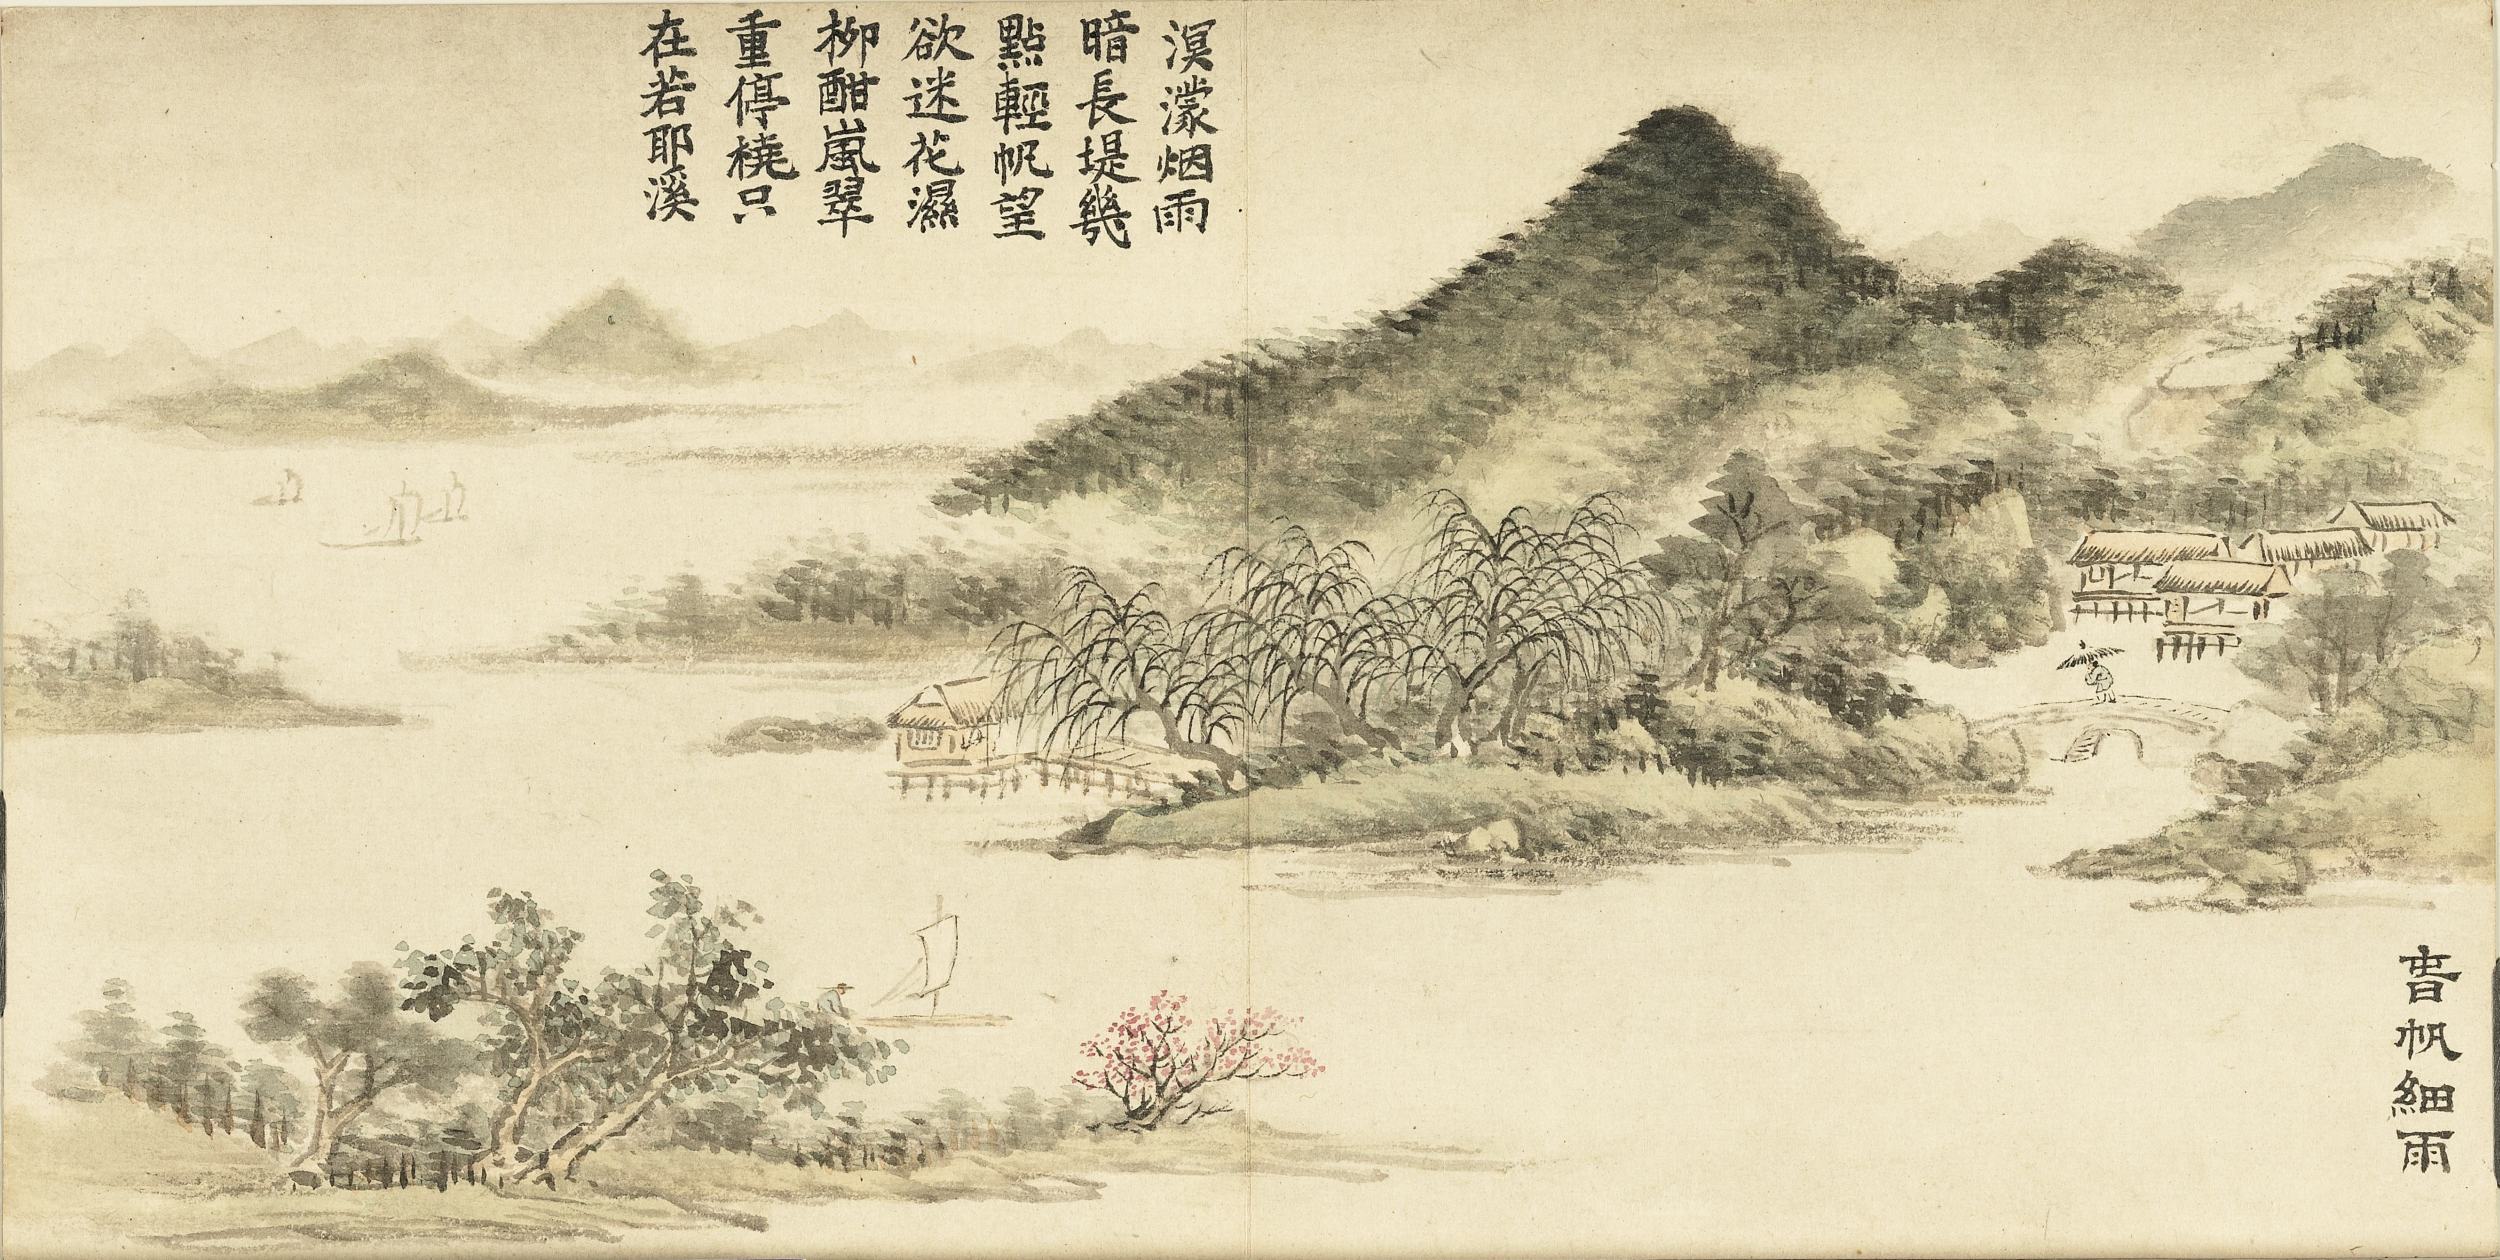 溟濛烟雨
暗長堤幾
點輕帆望
欲迷花濕
柳酣嵐翠
重停橈只
在若耶溪
旾帆細雨